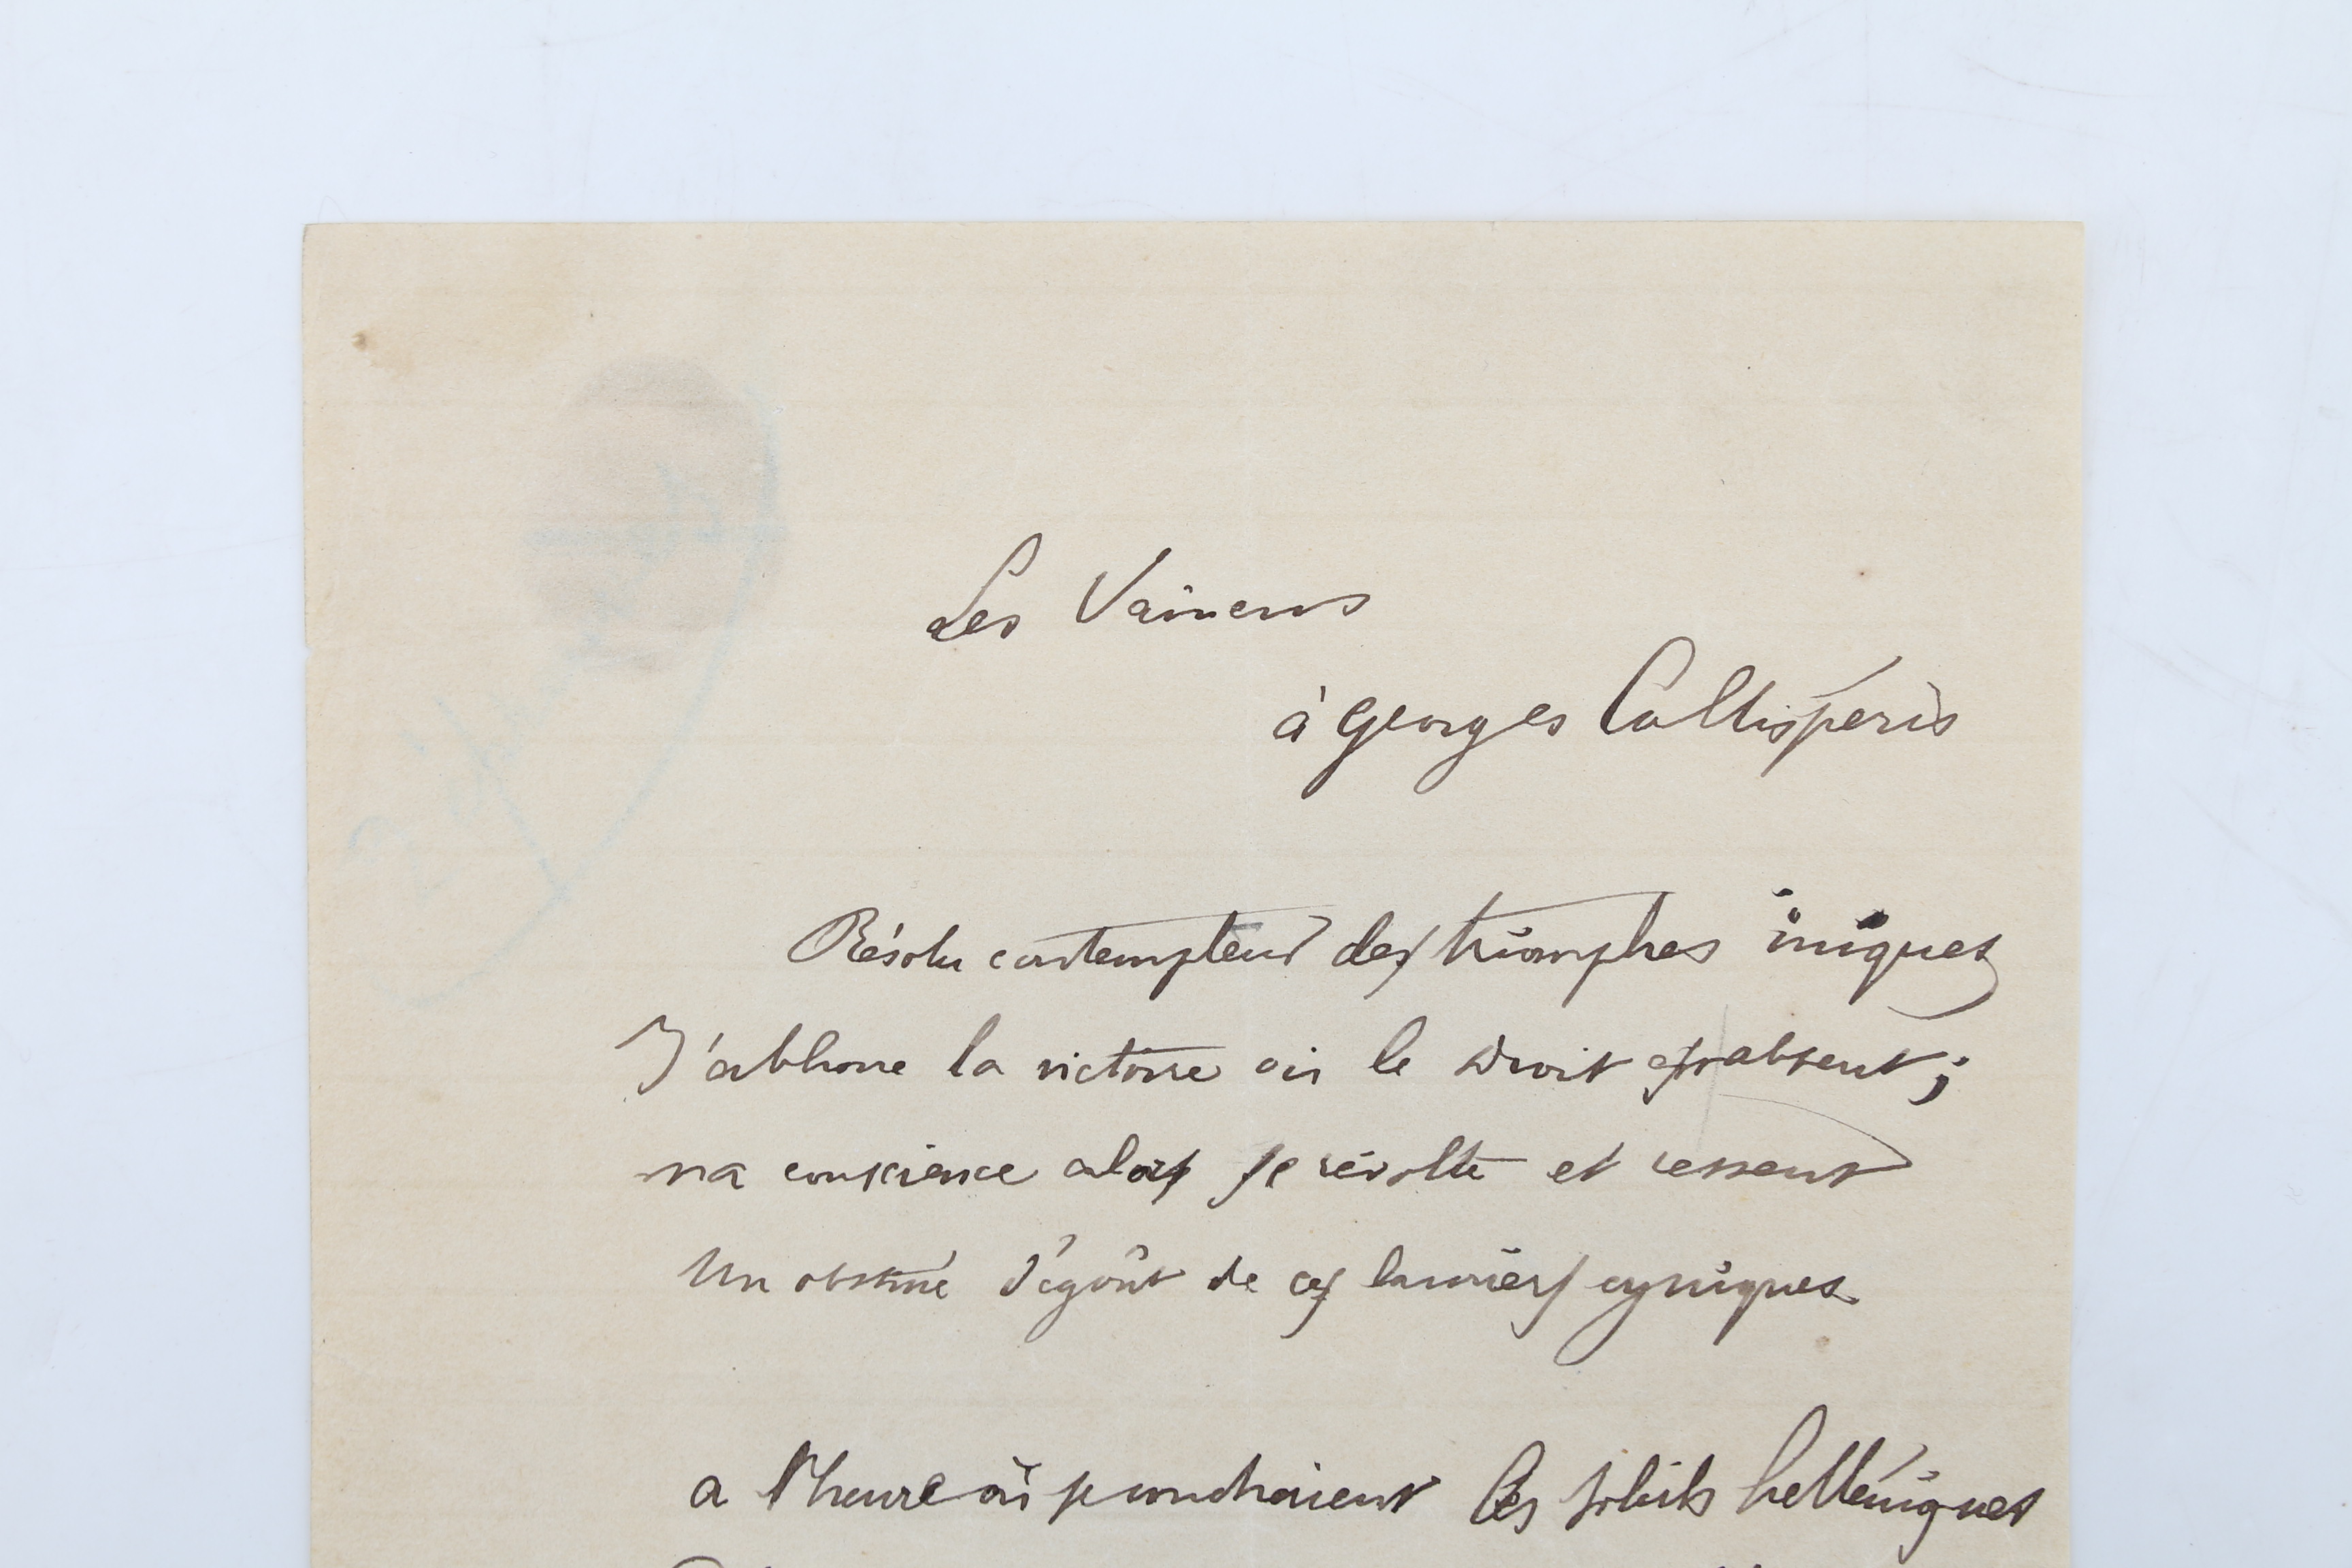 Les Vaincus
à Georges Callispéris
Résolu contempteur des triomphes iniques
J'abhorre la victoire où le droit est absent ;
ma conscience alors se révolte et ressent
Un obstiné dégoût de ces lauriers cyniques.
a l'heure où se couchaient les soleils helléniques